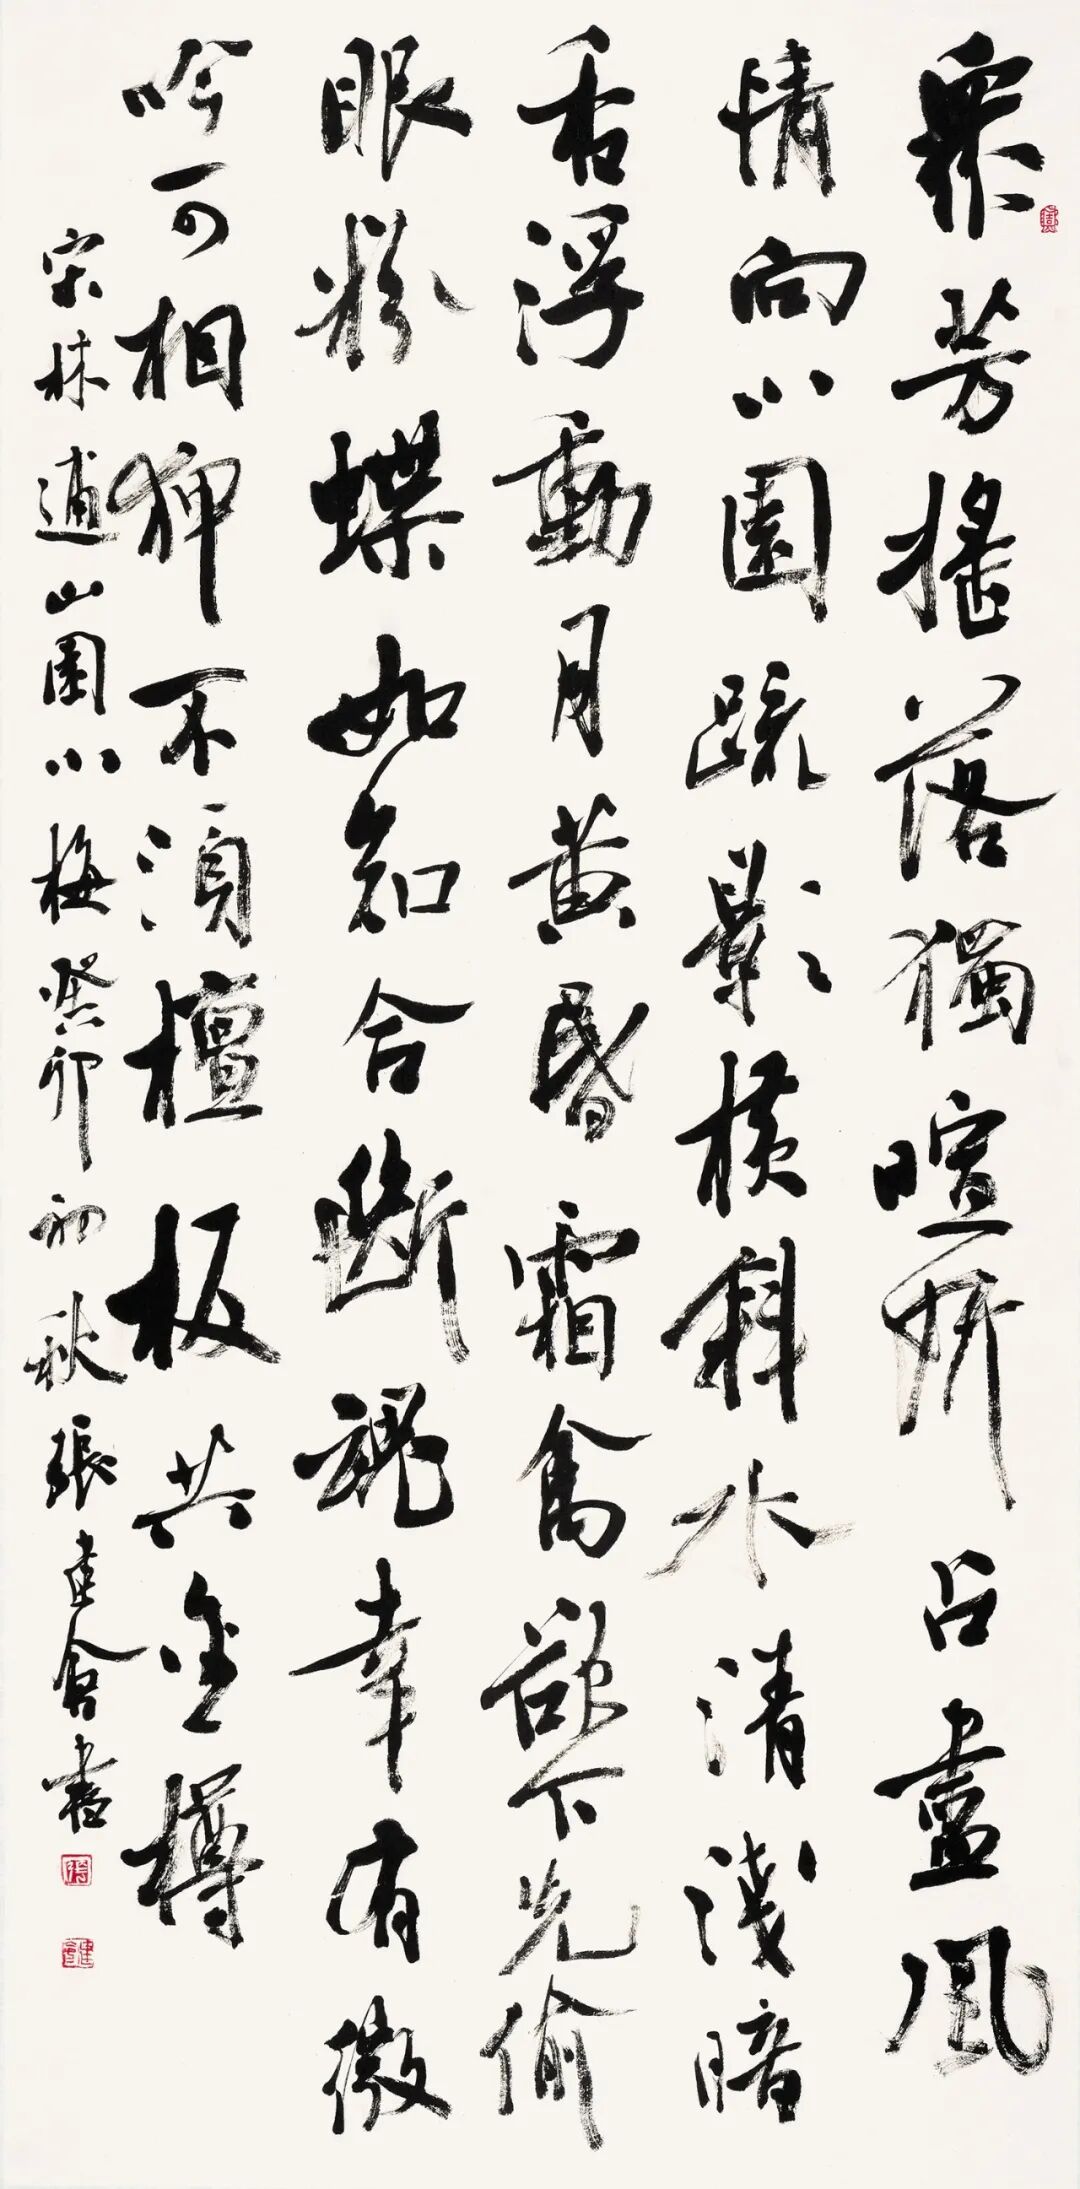 衆芳搖落獨暄妍占盡風
情向小園疏影橫斜水清淺暗
香浮動月黃昏霜禽欲下先偷
眼粉蝶如知合斷魂幸有微
吟可相狎不須檀板共金樽
宋林逋山園小梅癸卯初秋張建會書
張
建會